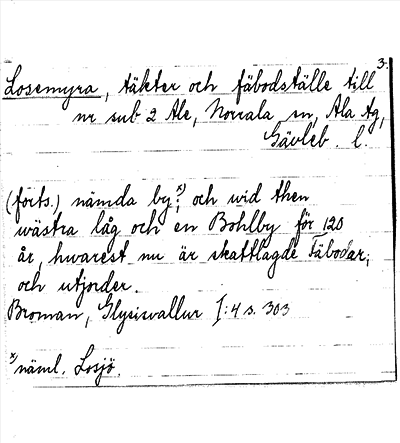 3.
Losemyra, täkter och fäbodställe till
nr sub 2 Ale, Norrala sn, Ala tg,
Gävleb. l.
(forts.) nämda by x); och wid then
wästra låg och en Bohlby för 120
år, hwarest nu är skattlagde Fäbodar;
och utjorder.
Broman, Glysisvallur I:4 s. 303
x) näml. Losjö.